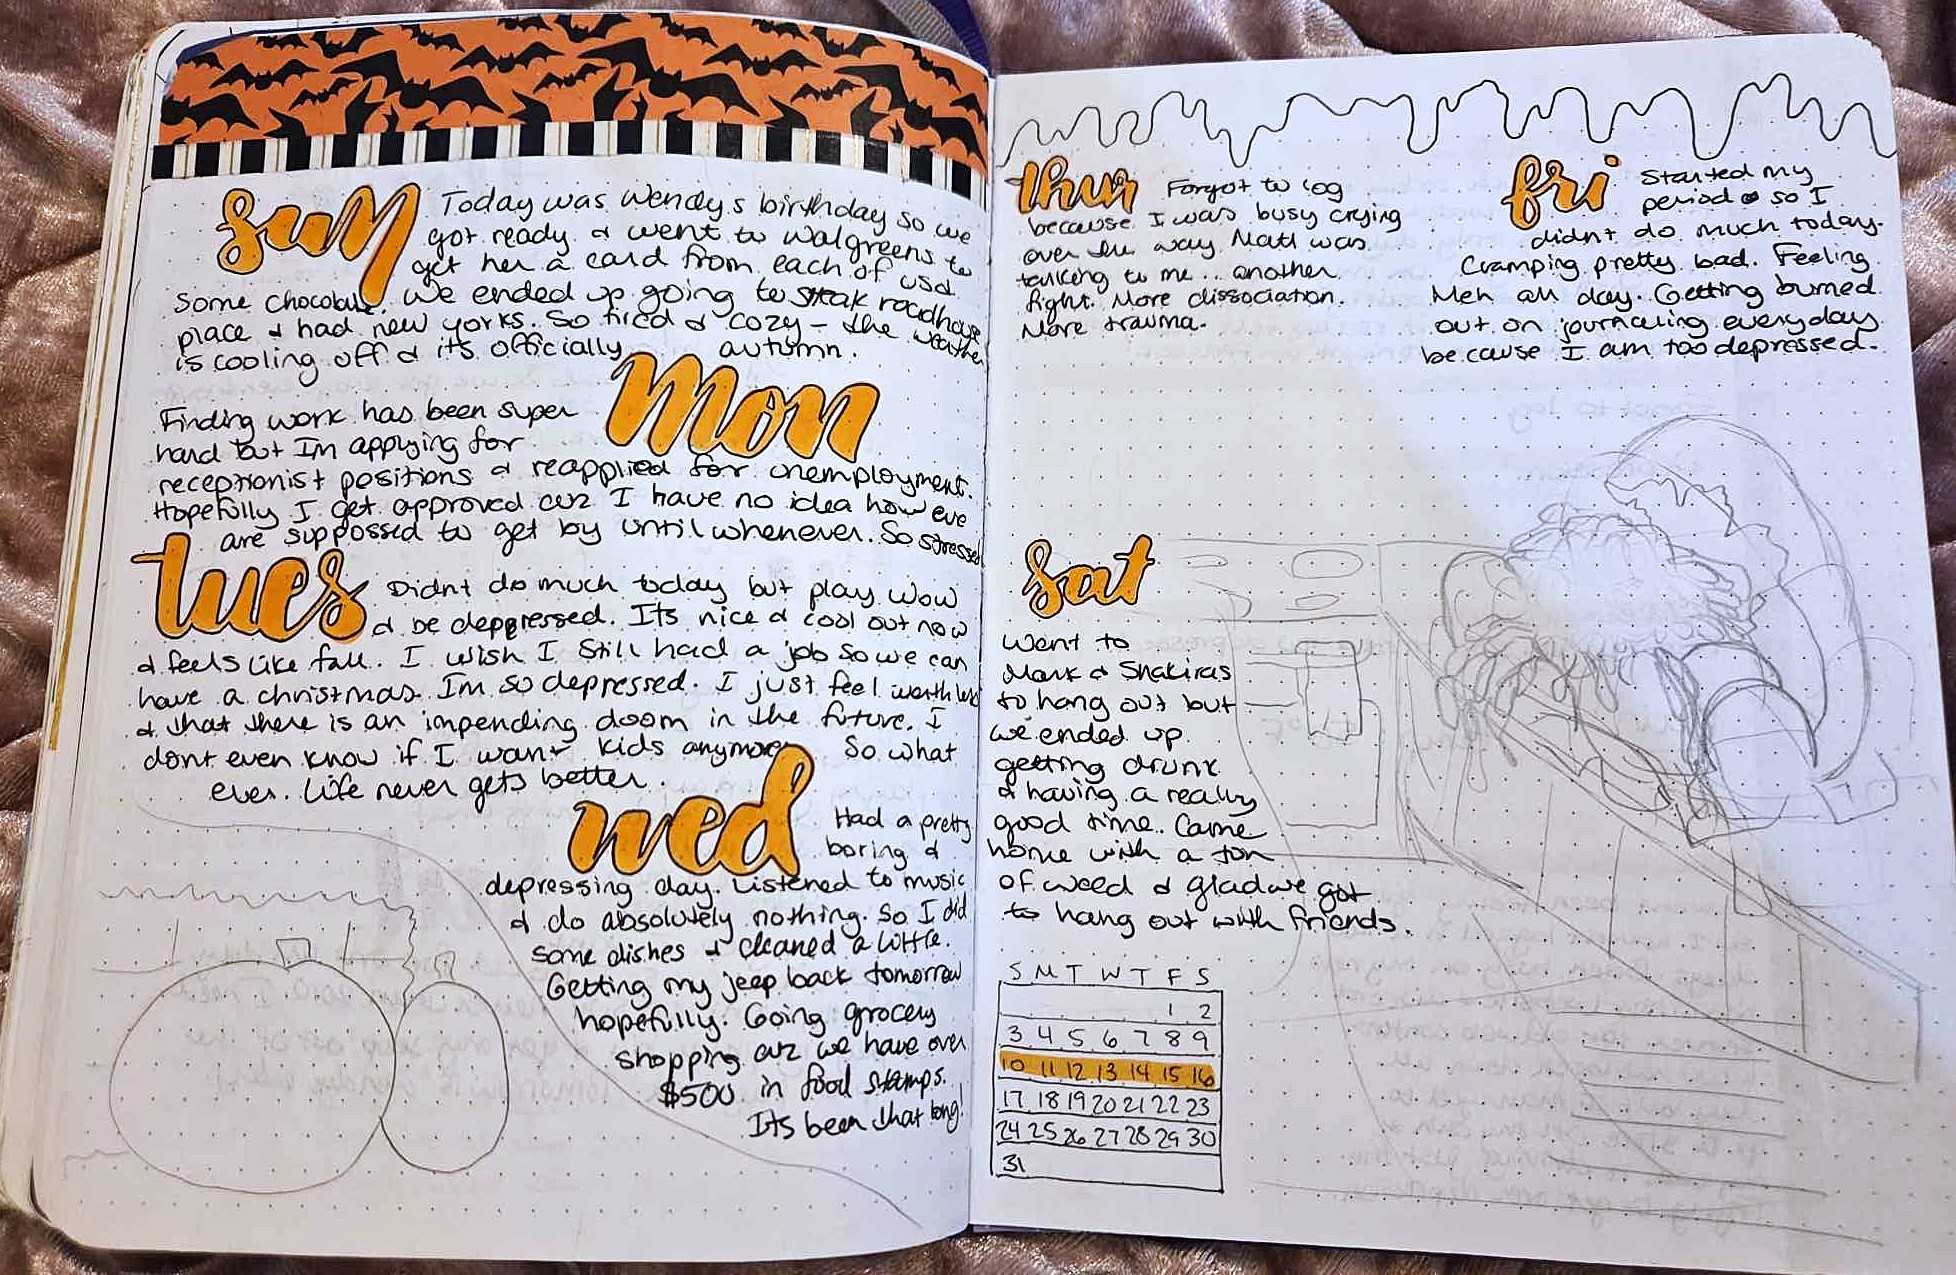 sun Today was Wendys birthday so we
got ready & went to Walgreens to
get her a card from each of us &
some chocolate. We ended up going to steak roadhouse
place & had new yorks. So tired & cozy - the weather
is cooling off & its officially autumn.
mon
Finding work has been super
hard but Im applying for
receptionist positions & reapplied for unemployment.
Hopefully I get approved cuz I have no idea how eve
are suppossed to get by until whenever. So stressed
tues Didnt do much today but play WoW
& be deppressed. Its nice & cool out now
& feels like fall. I wish I still had a job so we can
have a christmas. Im so depressed. I just feel worthless
& that there is an impending doom in the future. I
dont even know if I want kids anymore. So what
ever. Life never gets better.
wed Had a pretty
boring &
depressing day. Listened to music
& do absolutely nothing. So I did
some dishes & cleaned a little.
Getting my jeep back tomorrow
hopefully. Going grocery
shopping cuz we have over
$500 in food stamps.
Its been that long!
thur Forgot to log
because I was busy crying
over the way Matt was
talking to me... another
fight. More dissociation.
More trauma.
fri Started my
period so I
didnt do much today.
Cramping pretty bad. Feeling
Meh all day. Getting burned
out on journaling everyday
because I am too depressed.
sat
Went to
Mark & Shakiras
to hang out but
we ended up
getting drunk
& having a really
good time. Came
home with a ton
of weed & glad we got
to hang out with friends.
S M T W T F S
1 2
3 4 5 6 7 8 9
10 11 12 13 14 15 16
17 18 19 20 21 22 23
24 25 26 27 28 29 30
31